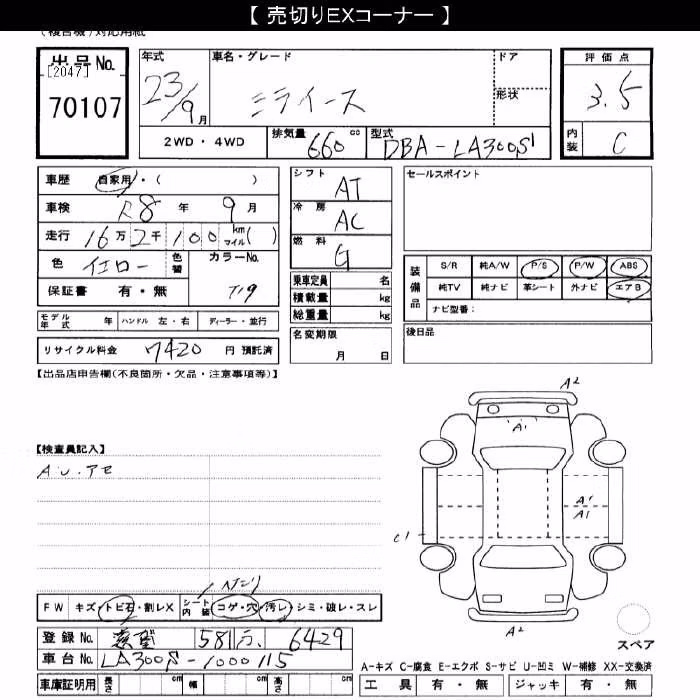 【 売切りEXコーナー 】
(複合機)対応用紙
出品No.
[2047]
70107
年式
23/9月
車名・グレード
ミライース
ドア
形状
評価点
3.5
内装
C
2WD・4WD
排気量 660 cc
型式 DBA-LA300S
車歴 自家用・( )
車検 R8 年 9 月
走行 16万2千100 km マイル( )
色 イエロー 色替 カラーNo.
T19
保証書 有・無
モデル年式 年 ハンドル 左・右 ディーラー・並行
リサイクル料金 7420 円 預託済
シフト AT
冷房 AC
燃料 G
乗車定員 名
積載量 kg
総重量 kg
名変期限
月 日
セールスポイント
装備品
S/R 純A/W P/S P/W ABS
純TV 純ナビ 革シート 外ナビ エアB
ナビ型番：
後日品
【出品店申告欄(不良箇所・欠品・注意事項等)】
【検査員記入】
A・U・アセ
A2
A1
A1
A1
C1
A2
スペア
FW キズ・トビ石・割レX シート内装 コゲ・穴・汚レ・シミ・破レ・スレ
登録No. 581 6429
車台No. LA300S-1000115
車庫証明用 長さ cm 幅 cm 高さ cm
A-キズ C-腐食 E-エクボ S-サビ U-凹ミ W-補修 XX-交換済
工具 有・無 ジャッキ 有・無